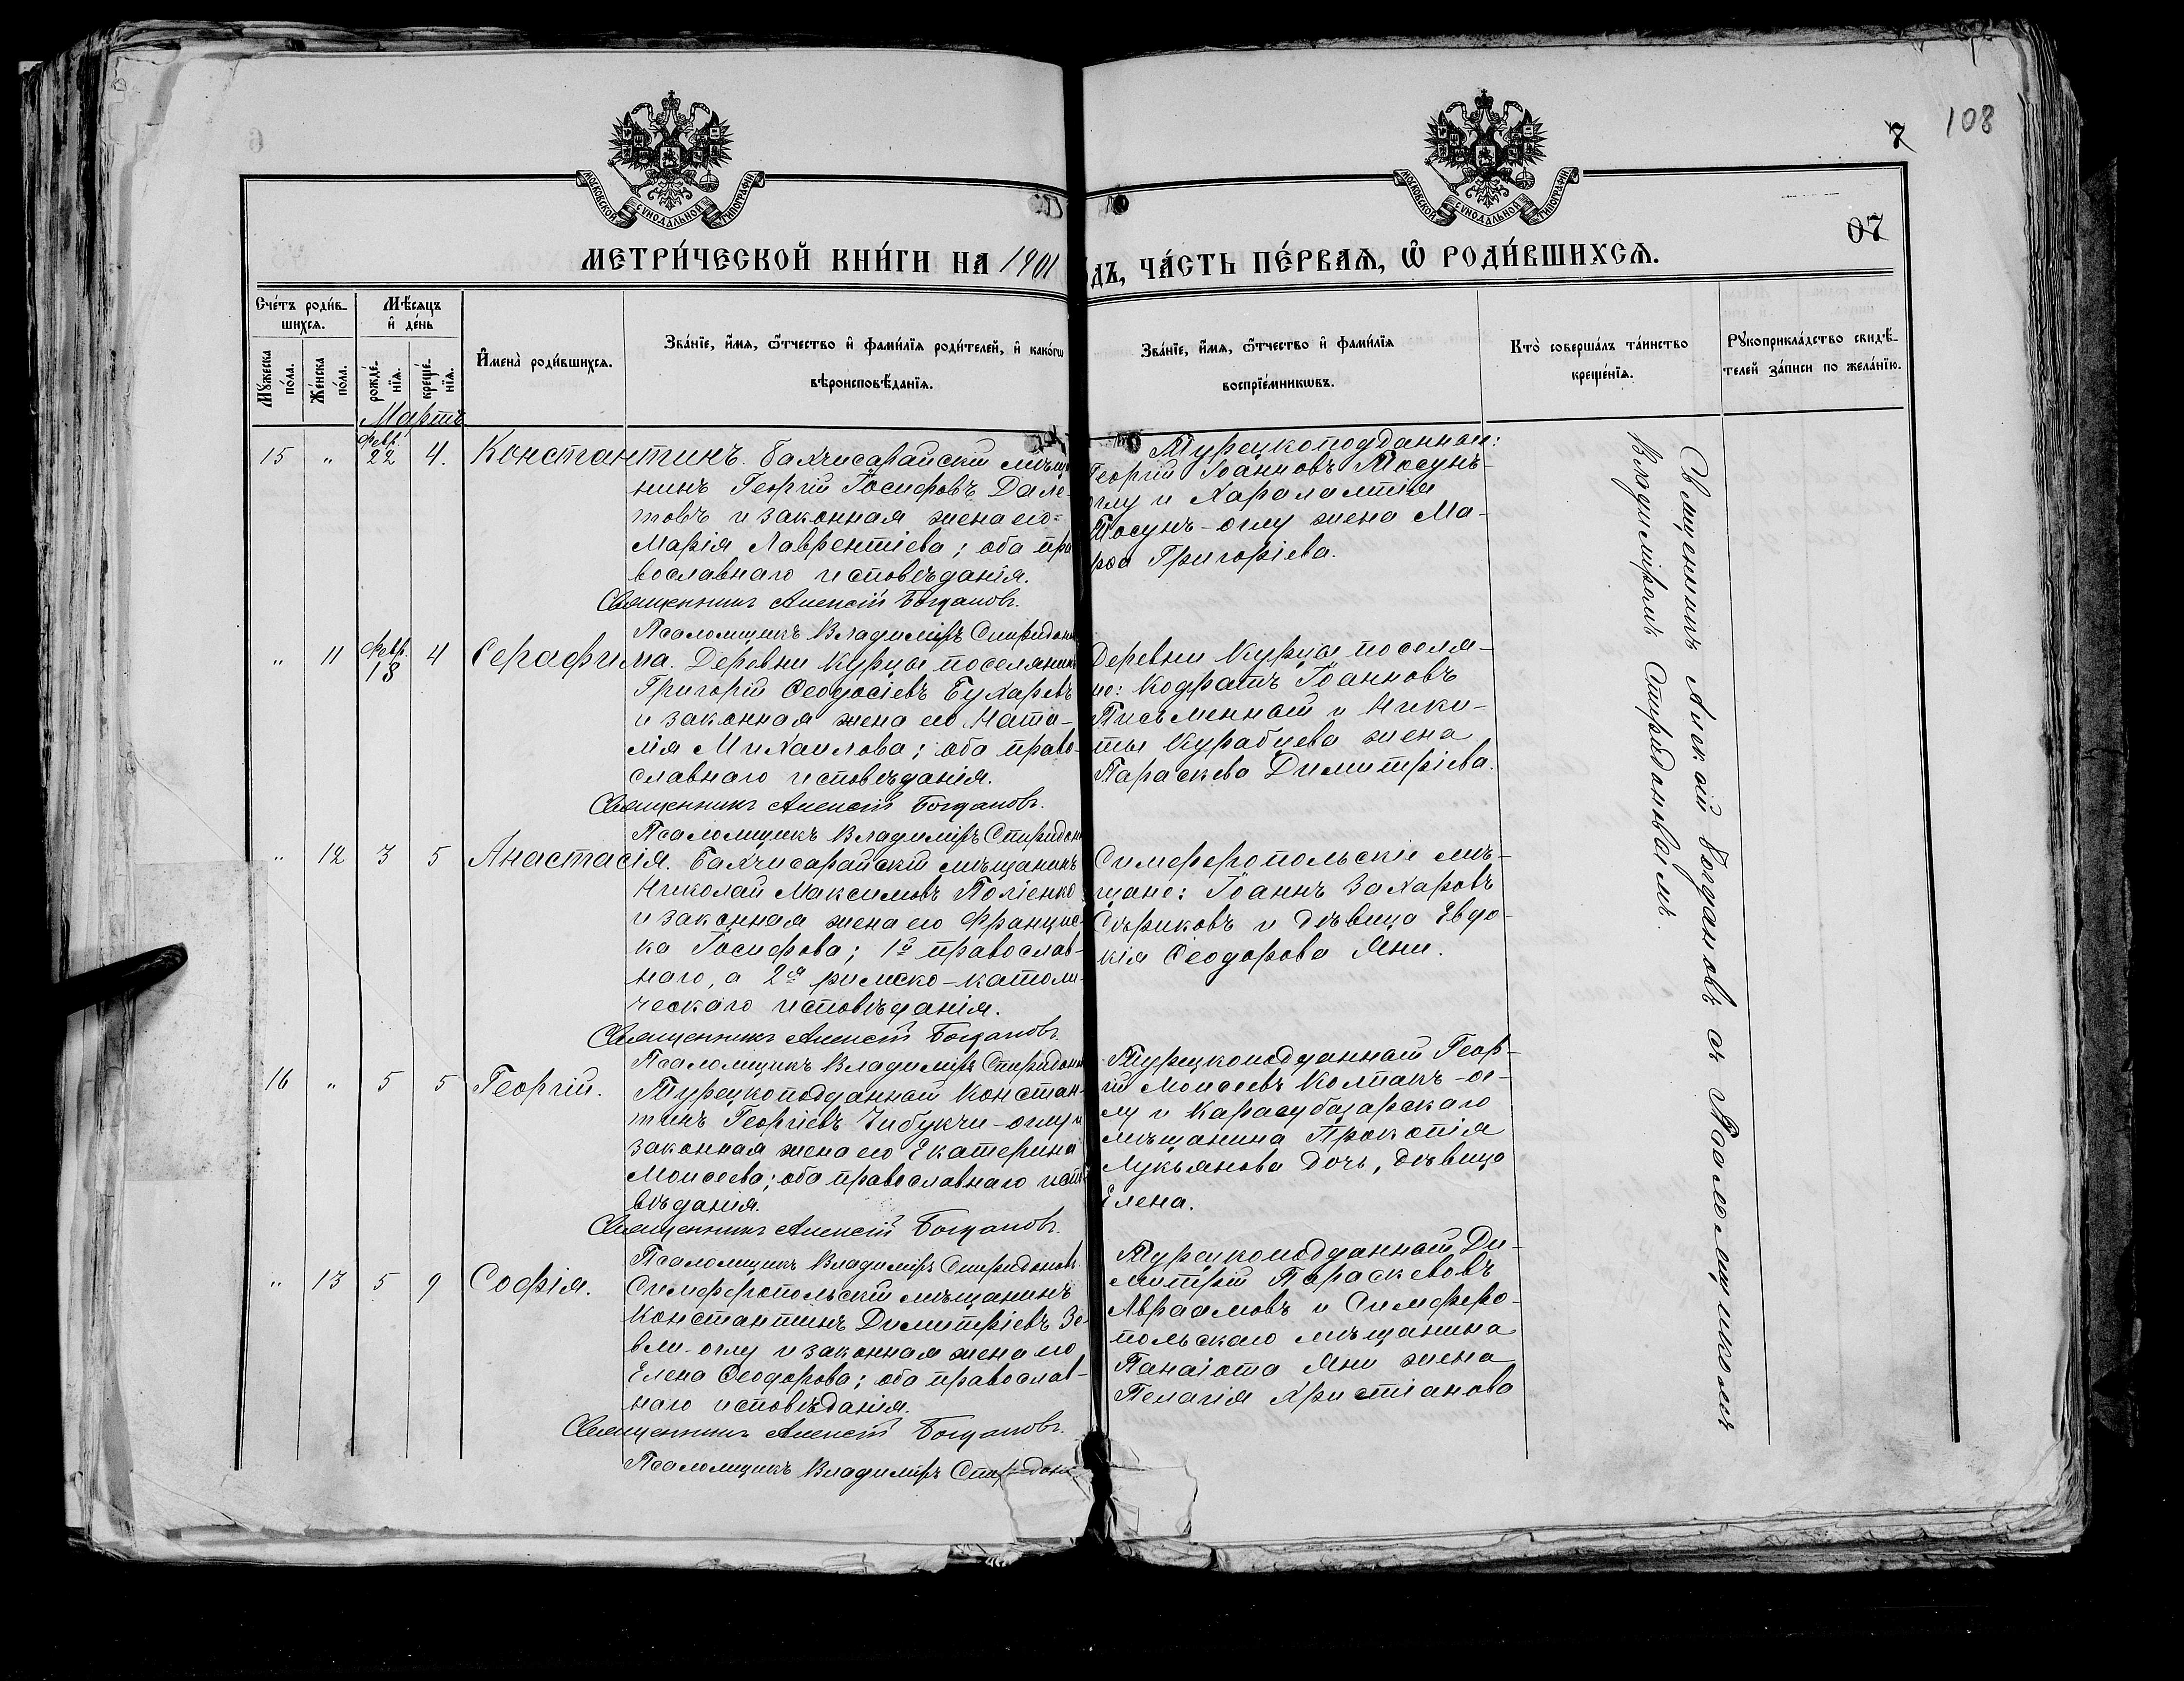 108
7
07
МОСКОВСКОЙ СѴНОДАЛЬНОЙ ТИПОГРАФІИ
МОСКОВСКОЙ СѴНОДАЛЬНОЙ ТИПОГРАФІИ
МЕТРИ́ЧЕСКОЙ КНИ́ГИ НА 1901
ДЪ, ЧА́СТЬ ПЕ́РВАЯ, Ѿ РОДИ́ВШИХСЯ.
Сче́тъ роди́в-
шихся.
Мѣ́сяцъ
и҆ де́нь
Мꙋ́жеска
по́ла.
Же́нска
по́ла.
рожде́-
нїя.
креще́-
нїя.
И҆мена̀ роди́вшихся.
Зва́нїе, и҆́мя, ѻ҆́тчество и҆ фами́лїя роди́телей, и҆ како́гѡ
вѣроисповѣ́данїя.
Зва́нїе, и҆́мя, ѻ҆́тчество и҆ фами́лїя
воспрїе́мникѡвъ.
Кто̀ соверша́лъ та́инство
креще́нїя.
Рꙋкоприкла́дство свидѣ́-
телей за́писи по жела́нїю.
Мартъ
15 " Февр. 22 4. Константинъ. Бахчисарайскій мѣща
нинъ Георгій Іосифовъ Дале-
товъ и законная жена его=
Марія Лаврентіева; оба пра
вославнаго исповѣданія.
Священникъ Алексій Богдановъ.
Псаломщикъ Владиміръ Спиридон
Турецкоподданные:
Георгій Іоанновъ Тосунъ-
оглу и Хараламтія
Тосунъ-оглу жена Ма-
роа Григоріева.
" 11 Февр. 18 4 Серафима. Деревни Курцы поселянинъ
Григорій Ѳеодосіевъ Бухаревъ
и законная жена его Ната-
лія Михаилова; оба право-
славнаго исповѣданія.
Священникъ Алексій Богдановъ.
Псаломщикъ Владиміръ Спиридон
Деревни Курцы поселя-
не: Кодратъ Іоанновъ
Письменный и Ники-
ты Курабцева жена
Параскева Димитріева.
" 12 3 5 Анастасія. Бахчисарайскій мѣщанинъ
Николай Максимовъ Поліенко
и законная жена его Францис-
ка Іосифова; 1й православ-
наго, а 2я римско-католи-
ческаго исповѣданія.
Священникъ Алексій Богдановъ.
Псаломщикъ Владиміръ Спиридон
Симферопольскіе мѣ-
щане: Іоаннъ Захаровъ
Сѣриковъ и дѣвица Евдо-
кія Ѳеодорова Яни.
16 " 5 5 Георгій. Турецкоподданный Констан-
тинъ Георгіевъ Чибукчи-оглу и
законная жена его Екатерина
Моисеева; оба православнаго испо-
вѣданія.
Священникъ Алексій Богдановъ.
Псаломщикъ Владиміръ Спиридоновъ
Турецкоподданный Геор-
гій Моисеевъ Колпакъ-ог-
лу и Карасубазарскаго
мѣщанина Прокопія
Лукьянова дочь, дѣвица
Елена.
" 13 5 9 Софія. Симферопольскій мѣщанинъ
Константинъ Димитріевъ Зе-
вли-оглу и законная жена его
Елена Ѳеодорова; оба православ-
наго исповѣданія.
Священникъ Алексій Богдановъ.
Псаломщикъ Владиміръ Спиридон
Турецкоподданный Ди-
митрій Параскевовъ
Авраамовъ и Симферо-
польскаго мѣщанина
Панаіота Яни жена
Пелагія Христіанова
Священникъ Алексій Богдановъ съ Псаломщикомъ
Владиміромъ Спиридоновымъ.